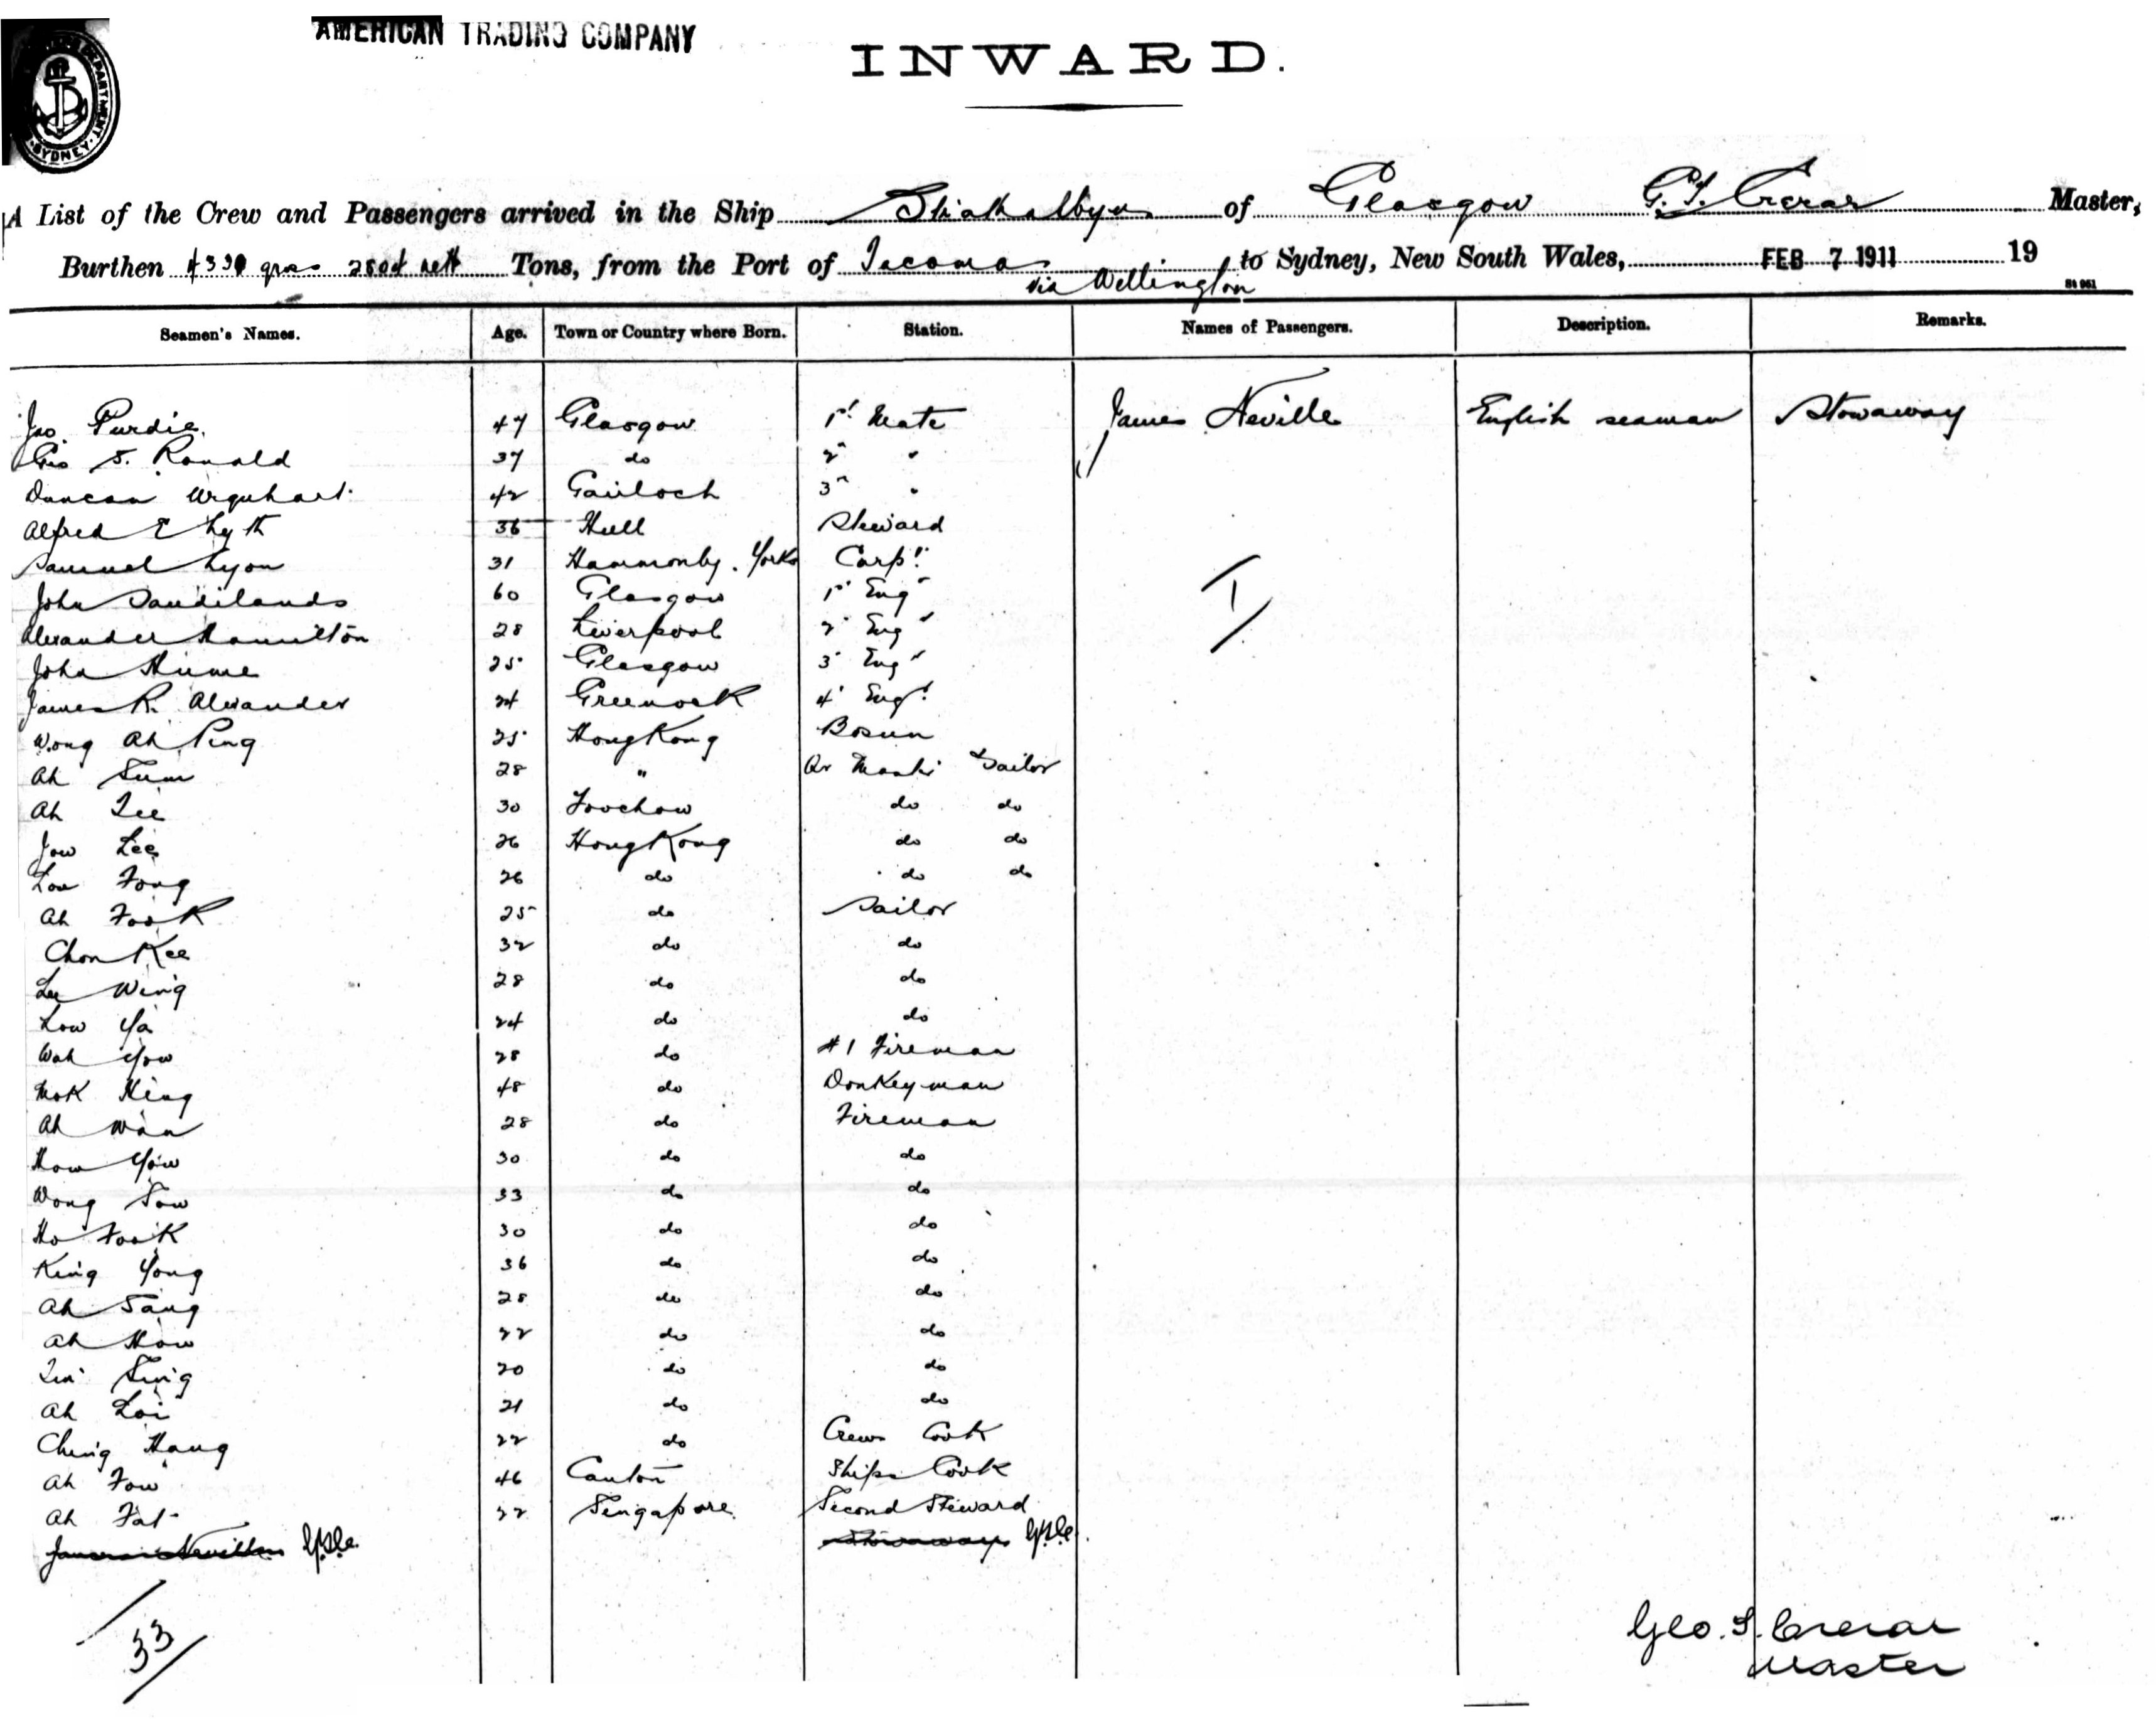 AMERICAN TRADING COMPANY
INWARD.
DEPARTMENT. SYDNEY.
A List of the Crew and Passengers arrived in the Ship of Glasgow G. S. Crerar Master,
Burthen 4330 gros nett Tons, from the Port of Tacoma to Sydney, New South Wales, FEB 7 1911 19
via Wellington
St 961
Seamen's Names. Age. Town or Country where Born. Station. Names of Passengers. Description. Remarks.
Jno. Purdie. 47 Glasgow 1st Mate James Neville English seaman Stowaway
Geo S. Ronald 37 do 2nd "
Duncan Urquhart. 42 Gairloch 3rd "
Alfred E Lyth 36 Hull Steward
Samuel Lyon 31 Hammonby. Yorks Carpr
John Sandilands 60 Glasgow 1st Engr
Alexander Hamilton 28 Liverpool 2nd Engr
John Hume 25 Glasgow 3rd Engr
James R. Alexander 24 Greenock 4th Engr
Wong Ah Ping 25 HongKong Bosun
Ah Sum 28 " Qr Mastr Sailor
Ah Lee 30 Foochow do do
Jow Lee 26 HongKong do do
Low Fong 26 do do do
Ah Fook 25 do Sailor
Chon Kee 32 do do
Lee Wing 28 do do
Low Ya 24 do do
Wah Yow 28 do #1 Fireman
Mok Hing 48 do Donkeyman
Ah Wan 28 do Fireman
How Yow 30 do do
Wong Sow 33 do do
Ho Fook 30 do do
King Yong 36 do do
Ah Sang 28 do do
Ah How 22 do do
Sing 20 do do
Ah Loi 21 do do
Ching Hang 22 do Crews Cook
Ah Fow 46 Canton Ships Cook
Ah Fat 22 Singapore Second Steward
James Neville Stowaway
33
Geo. S. Crerar
Master